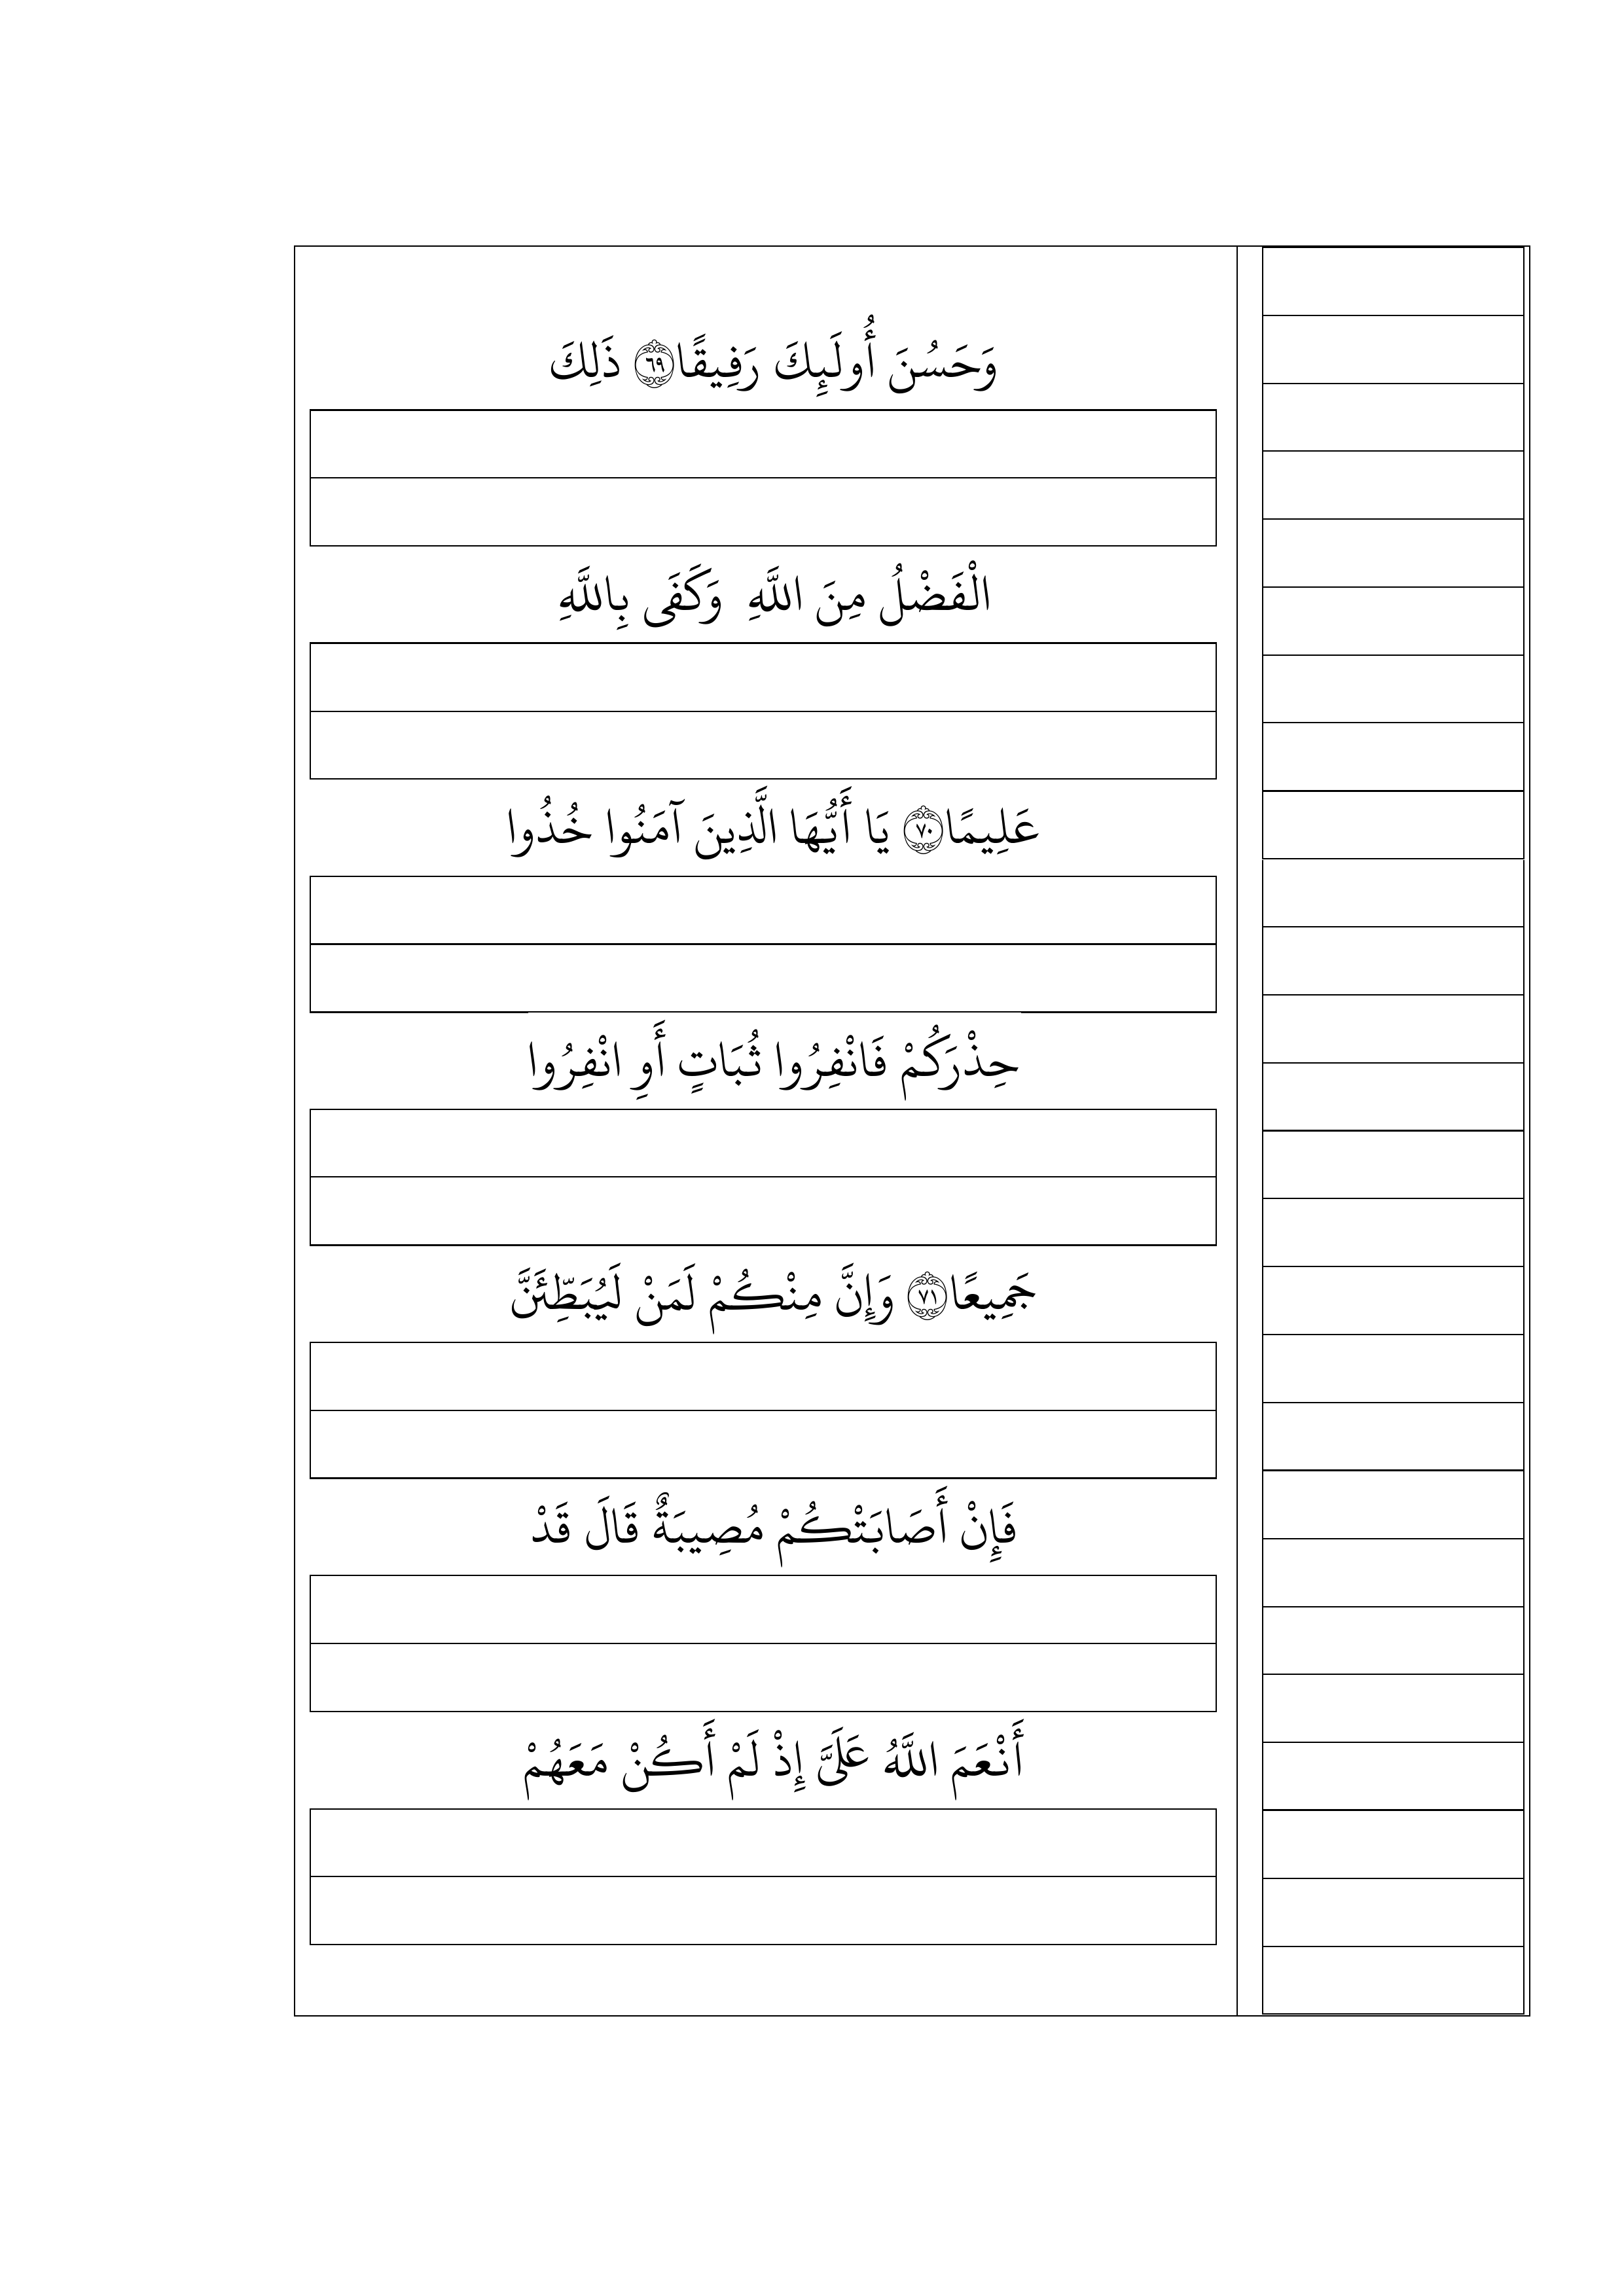 وَحَسُنَ أُولَئِكَ رَفِيقًا ۝٦٩ ذَلِكَ
الْفَضْلُ مِنَ اللَّهِ وَكَفَى بِاللَّهِ
عَلِيمًا ۝٧٠ يَا أَيُّهَا الَّذِينَ آمَنُوا خُذُوا
حِذْرَكُمْ فَانْفِرُوا ثُبَاتٍ أَوِ انْفِرُوا
جَمِيعًا ۝٧١ وَإِنَّ مِنْكُمْ لَمَنْ لَيُبَطِّئَنَّ
فَإِنْ أَصَابَتْكُمْ مُصِيبَةٌ قَالَ قَدْ
أَنْعَمَ اللَّهُ عَلَيَّ إِذْ لَمْ أَكُنْ مَعَهُمْ